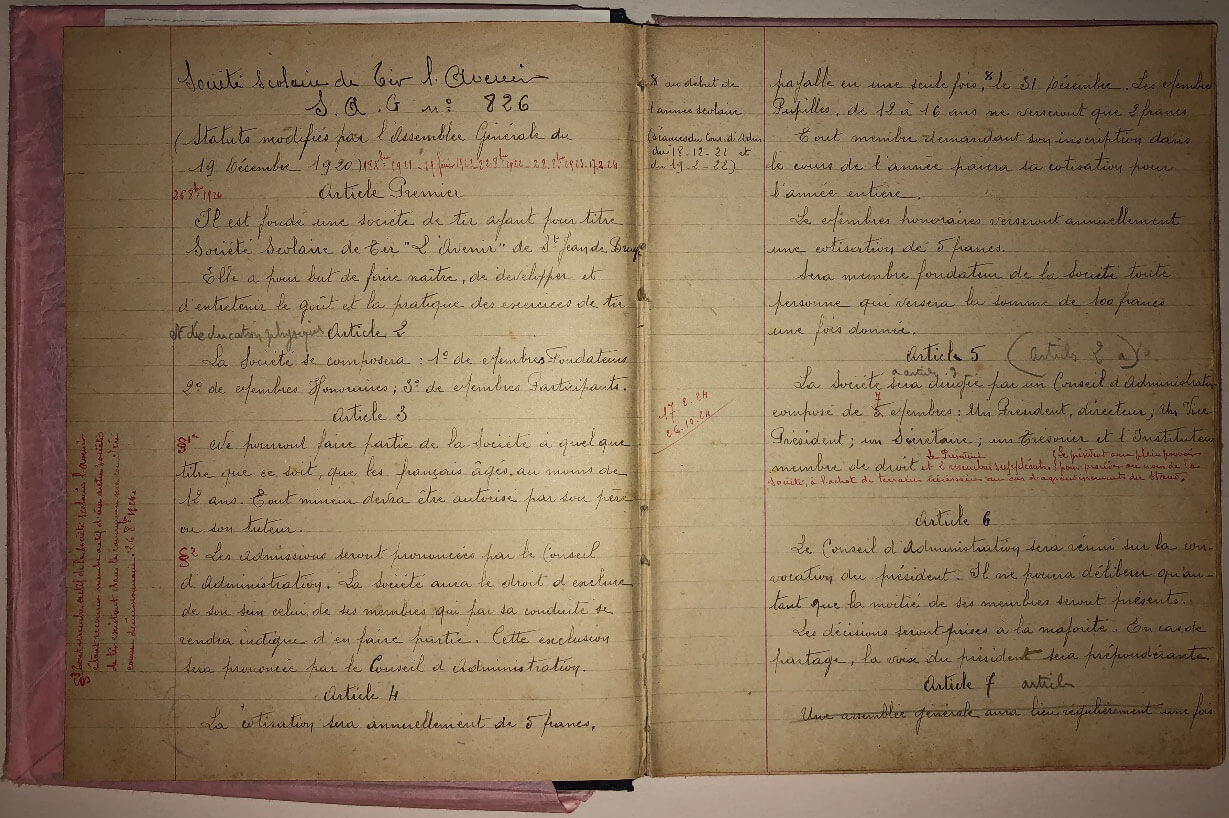 Société Scolaire de Tir l'Avenir
S. A. G n° 826
(Statuts modifiés par l'Assemblée Générale du
19 Décembre 1920)
26 8bre 1924
Article Premier
Il est fondé une société de tir ayant pour titre
Société Scolaire de Tir "L'Avenir" de St Jean de
Elle a pour but de faire naître, de développer et
d'entretenir le goût et la pratique des exercices de tir
et d'éducation physique
Article 2
La Société se composera : 1° de Membres Fondateurs
2° de Membres Honoraires ; 3° de Membres Participants.
Article 3
§ 1er Ne pourront faire partie de la Société à quel que
titre que ce soit, que les français âgés au moins de
12 ans. Tout mineur devra être autorisé par son père
ou son tuteur.
§ 2 Les Admissions seront prononcées par le Conseil
d'Administration. La Société aura le droit d'exclure
de son sein celui de ses membres qui par sa conduite se
rendra indigne d'en faire partie. Cette exclusion
sera prononcée par le Conseil d'Administration.
Article 4
La cotisation sera annuellement de 5 francs,
§ 3 Tout membre actif de la Société scolaire l'avenir
étant reconnu membre actif d'une autre société
de tir
comme démissionnaire. 26 8bre 1924
x au début de
l'année scolaire
(séances du Cons. d'Adm
du 18-12-21 et
du 19-2-22)
payable en une seule fois, x le 31 Décembre. Les Membres
Pupilles, de 12 à 16 ans ne verseront que 2 francs
Tout membre demandant son inscription dans
le cours de l'année paiera sa cotisation pour
l'année entière.
Les Membres honoraires verseront annuellement
une cotisation de 5 francs.
Sera membre fondateur de la Société toute
personne qui versera la somme de 100 francs
une fois donnée.
Article 5 (Article 2
La Société sera dirigée par un Conseil d'Administration
17-2-24
26.10.24
composé de 7 Membres : Un Président, directeur ; Un Vice
Président ; un Secrétaire ; un Trésorier et l'Instituteur
membre de droit et 2 membres suppléants. (Le président aura plein pouvoir
pour procéder au nom de la
société, à l'achat de terrain nécessaire au cas d'agrandissement du stand.
Article 6
Le Conseil d'Administration sera réuni sur la con-
vocation du président. Il ne pourra délibérer qu'au-
tant que la moitié de ses membres seront présents.
Les décisions seront prises à la majorité. En cas de
partage, la voix du président sera prépondérante.
Article 7 article
Une assemblée générale aura lieu régulièrement une fois